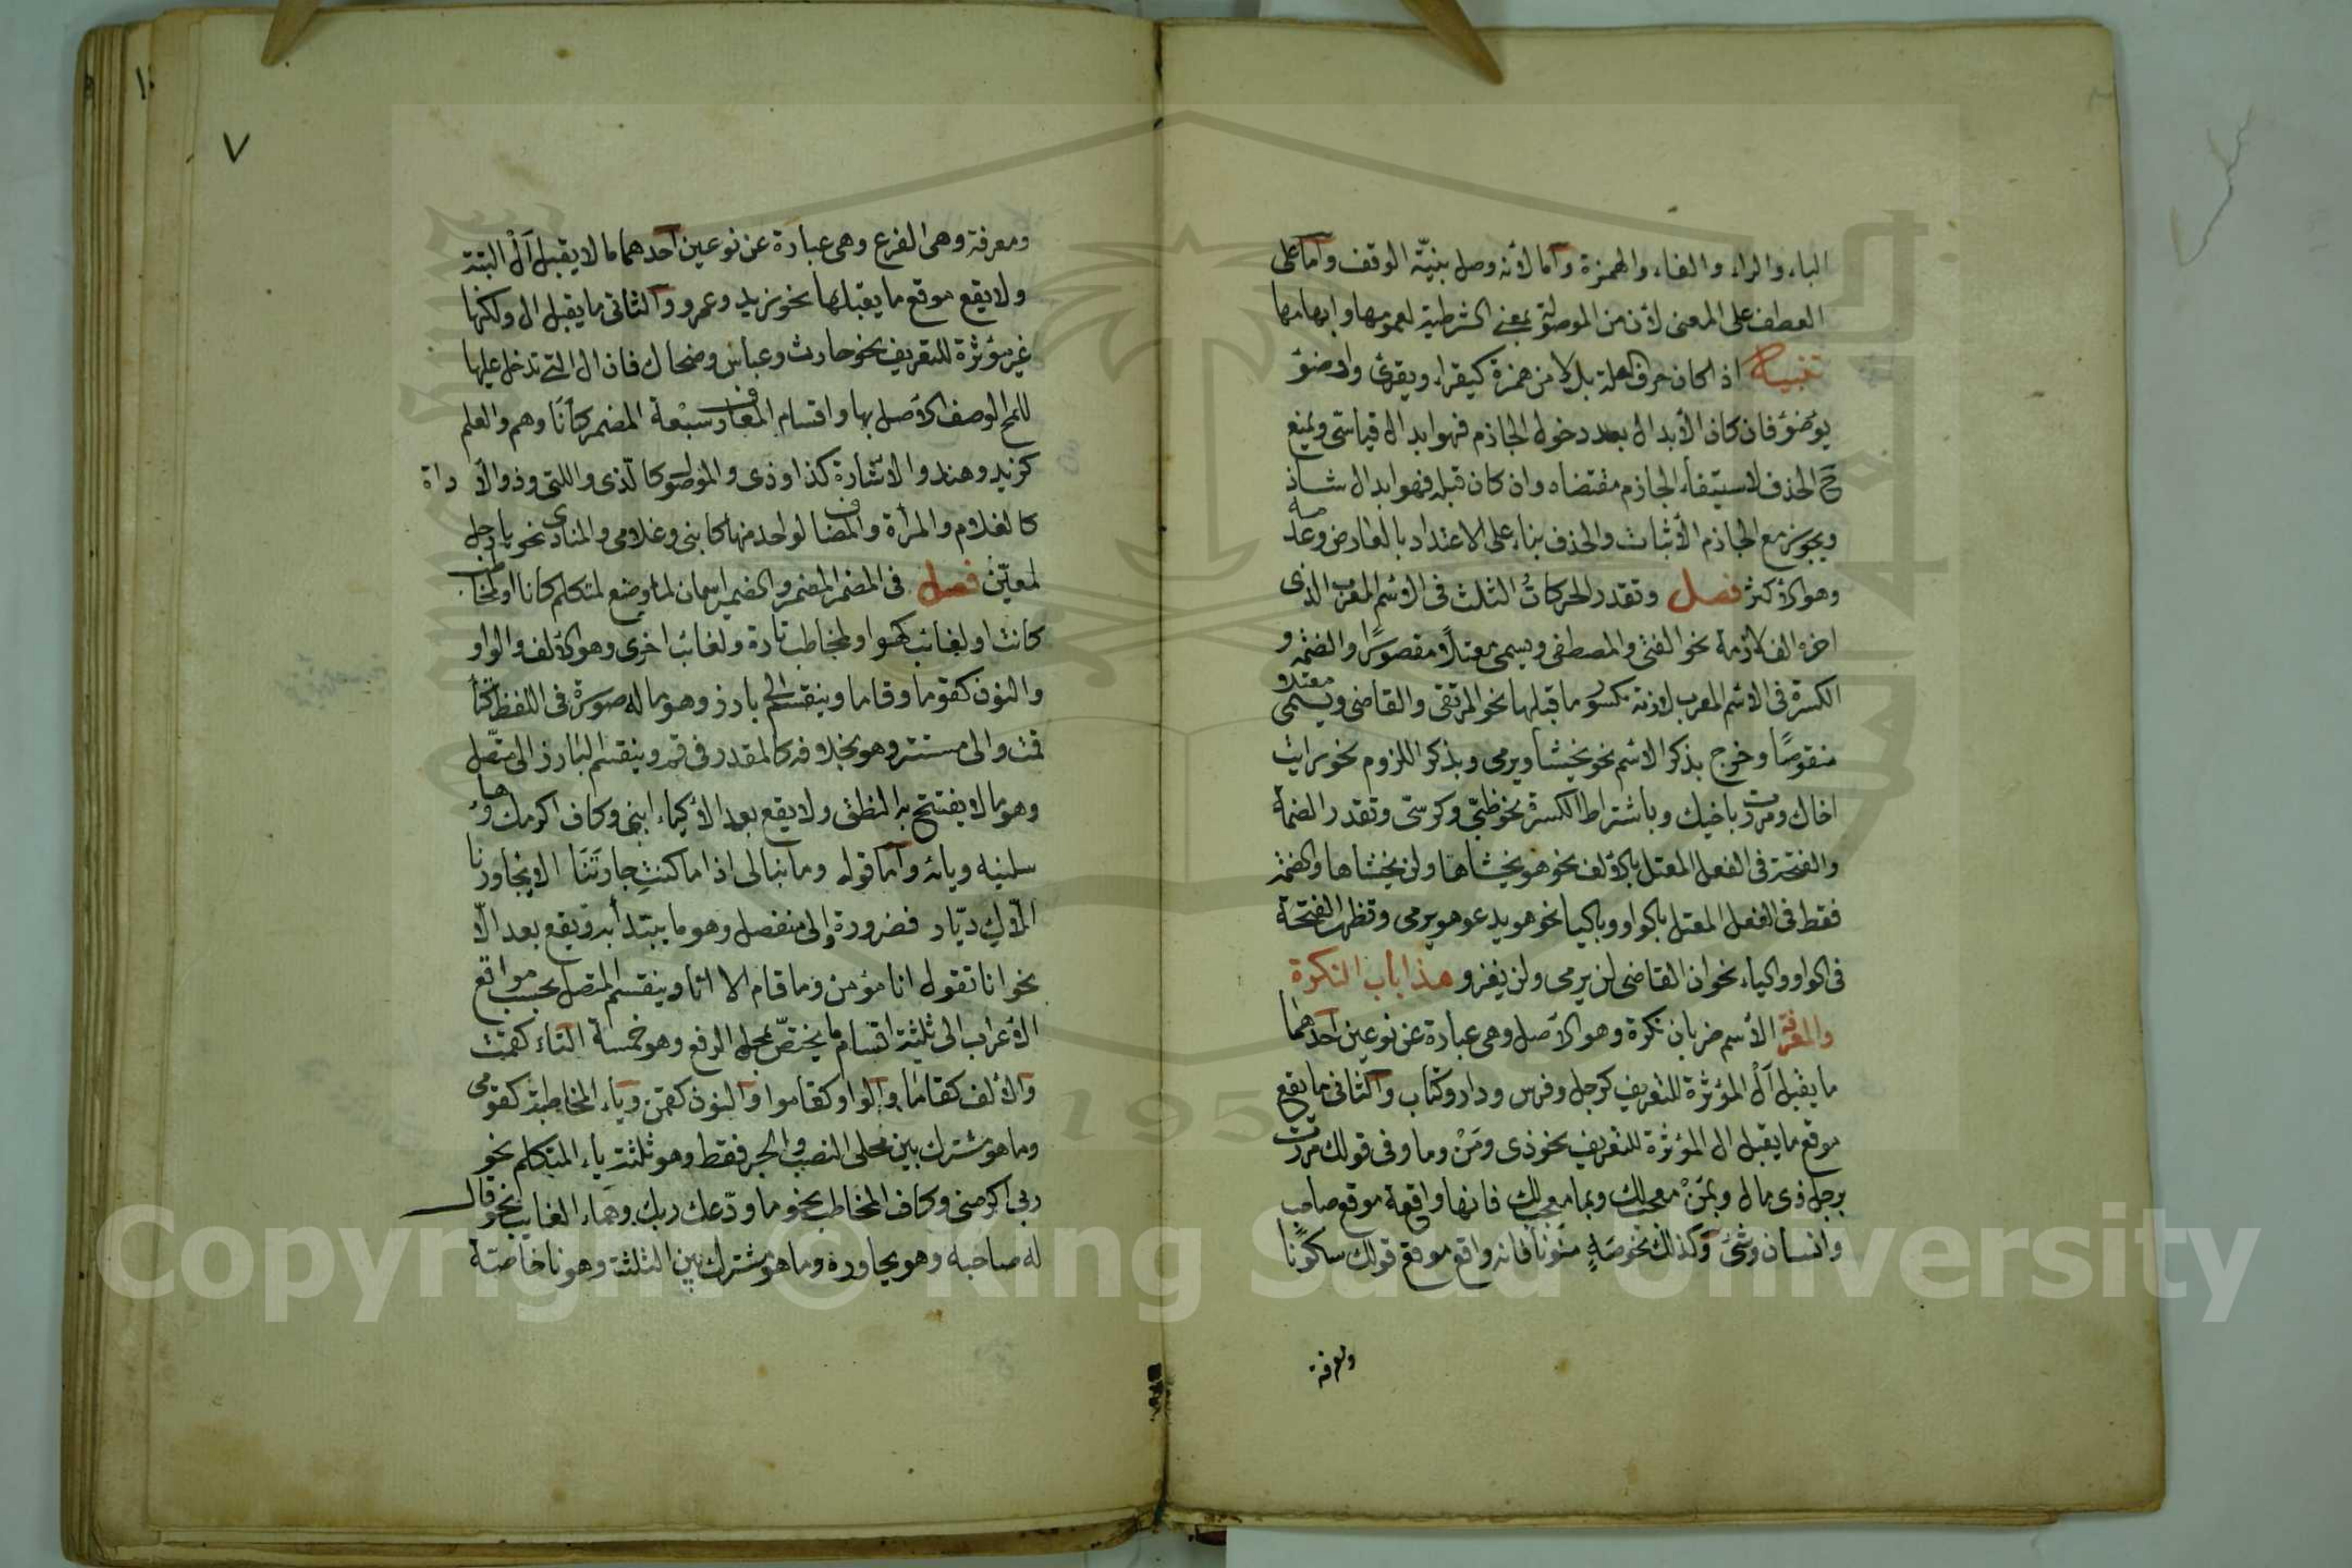 الباء والراء والفاء والهمزة وآما لأنه وصل بنيّة الوقف وآما على
العطف على المعنى لأن من الموصولة بمعنى الشرطية لعمومها وابهامها
تنبيه اذا كان حرف العلة بدلا من همزة كيقرا ويقرئ واو وضوء
يوضؤ فان كان الأبدال بعد دخول الجازم فهو ابدال قياسي ويمتنع
ح الحذف لاستيفاء الجازم مقتضاه وان كان قبله فهو ابدال شاذ
ويجوز مع الجازم الأثبات والحذف بناء على الاعتداد بالعارض وعدمه
وهو الأكثر فصل وتقدر الحركاتُ الثلث في الأسم المعرب الذى
اخره الف لازمة نحو الفتى والمصطفى ويسمى معتلاً مقصورًا والضمة و
الكسرة في الاسم المعرب لازمة مكسور ما قبلها نحو المرتقى والقاضى ويسمى معتلا
منقوصًا وخرج بذكر الاسم نحو يخشا ويرمى وبذكر اللزوم نحو رايت
اخاك ومررت باخيك وباشتراط الكسرة نحو ظبي وكرسي وتقدر الضمة
والفتحة فى الفعل المعتل بالألف نحو هو يخشاها ولن يخشاها والضمة
فقط فى الفعل المعتل بالواو وبالياء نحو هو يدعو هو يرمى وتظهر الفتحة
فى الواو والياء نحو ان القاضى لن يرمى ولن يغزو هذا باب النكرة
والمعرفة الأسم ضربان نكرة وهو الأصل وهى عبارة عن نوعين آحدهما
ما يقبل آلْ المؤثرة للتعريف كرجل وفرس ودار وكتاب والثانى ما يقع
موقع ما يقبل ال المؤثرة للتعريف نحو ذى ومَنْ وما وفى قولك مررت
برجل ذى مال وبمَنْ معجب لك وبما معجب لك فانها واقعة موقع صاحب
وانسان وشئ وكذلك نحو صَهٍ منونا فانه واقع موقع قولك سكوتًا
ومعرفة
٧
ومعرفة وهى الفرع وهى عبارة عن نوعين آحدهما ما لا يقبل آلْ البتة
ولا يقع موقع ما يقبلها نحو زيد وعمرو والثانى ما يقبل ال ولكنها
غير مؤثرة للتعريف نحو حارث وعباس وضحاك فان ال التى تدخل عليها
للمح الوصف الأصل بها واقسام المعارف سبعة المضمر كأنَا وهم والعلم
كزيد وهند والاشارة كذا وذى والموصول كالذى واللتى وذو الأداة
كالغلام والمرأة والمضاف لواحد منها كابنى وغلامى والمنادى نحو يا رجل
لمعيّن فصل فى المضمر المضمر والضمير اسمان لما وضع لمتكلم كانا او لمخاطب
كانت او لغائب كهو او لمخاطب تارة ولغائب اخرى وهو الألف والواو
والنون كقوما وقاما وينقسم الى بارز وهو ما له صورة فى اللفظ كتاء
قمت والى مستتر وهو بخلافه كالمقدر فى قم وينقسم البارز الى متّصل
وهو ما لا يفتتح به النطق ولا يقع بعد الا كياء ابنى وكاف اكرمك وهاء
سلنيه ويائه وآما قوله وما نبالى اذا ما كنتِ جارتَنَا الا يجاورنا
الّاكِ ديّار فضرورة والى منفصل وهو ما يبتدأ به ويقع بعد الّا
نحو انا تقول انا مؤمن وما قام الا انا وينقسم المتصل بحسب مواقع
الأعراب الى ثلثة اقسام ما يختصّ بمحل الرفع وهو خمسة التاء كقمت
والألف كقاما والواو كقاموا والنون كقمن وياء المخاطبة كقومى
وما هو مشترك بين محلى النصب والجر فقط وهو ثلثة ياء المتكلم نحو
ربى اكرمنى وكاف المخاطب نحو ما ودّعك ربك وهاء الغايب نحو قال
له صاحبه وهو يحاوره وما هو مشترك بين الثلثة وهو نا خاصة
Copyright © King Saud University
195